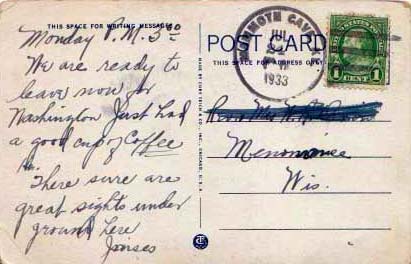 THIS SPACE FOR WRITING MESSAGES
Monday P.M. 5 00
We are ready to
leave now for
Washington Just had
a good cup of Coffee
There sure are
great sights under
ground here
POST CARD
THIS SPACE FOR ADDRESS ONLY
MAMMOTH CAVE, K
JUL
17
1933
1 CENT 1
Menominee
Wis.
MADE BY CURT TEICH & CO., INC., CHICAGO, U.S.A.